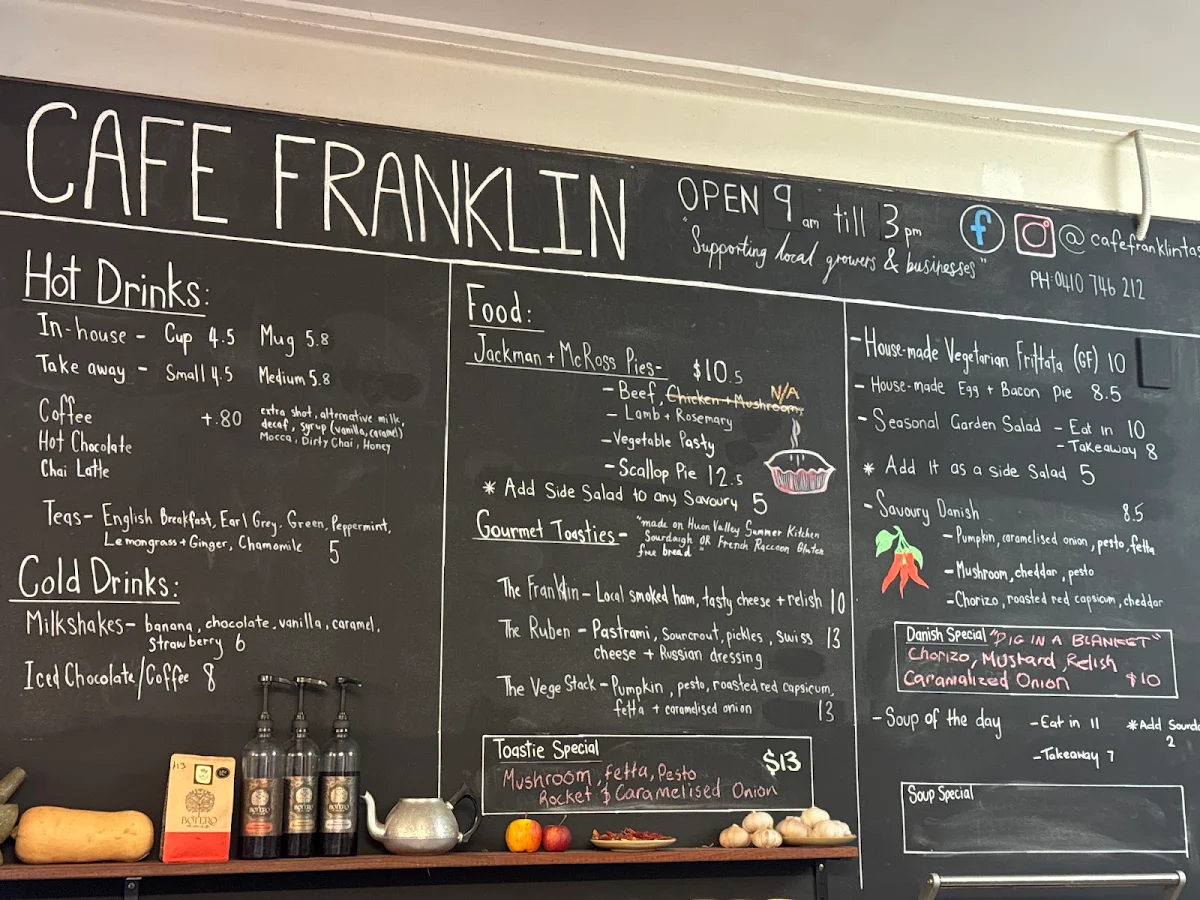 CAFE FRANKLIN
OPEN 9 am till 3 pm
"Supporting local growers & businesses"
f @ cafefranklintas
PH: 0410 746 212
Hot Drinks:
In-house - Cup 4.5 Mug 5.8
Take away - Small 4.5 Medium 5.8
Coffee +.80 extra shot, alternative milk,
decaf, syrup (vanilla, caramel)
Hot Chocolate Mocca, Dirty Chai, Honey
Chai Latte
Teas- English Breakfast, Earl Grey, Green, Peppermint,
Lemongrass + Ginger, Chamomile 5
Cold Drinks:
Milkshakes- banana, chocolate, vanilla, caramel,
strawberry 6
Iced Chocolate/Coffee 8
Food:
Jackman + McRoss Pies- $10.5
- Beef, Chicken + Mushroom, N/A
- Lamb + Rosemary
- Vegetable Pasty
- Scallop Pie 12.5
* Add Side Salad to any Savoury 5
Gourmet Toasties - "made on Huon Valley Summer Kitchen
Sourdough OR French Raccoon Gluten
free bread"
The Franklin - Local smoked ham, tasty cheese + relish 10
The Ruben - Pastrami, Sourcrout, pickles, swiss 13
cheese + Russian dressing
The Vege Stack - Pumpkin, pesto, roasted red capsicum,
fetta + caramelised onion 13
Toastie Special $13
Mushroom, fetta, Pesto
Rocket & Caramelised Onion
- House-made Vegetarian Frittata (GF) 10
- House-made Egg + Bacon Pie 8.5
- Seasonal Garden Salad - Eat in 10
- Takeaway 8
* Add it as a side Salad 5
- Savoury Danish 8.5
- Pumpkin, caramelised onion, pesto, fetta
- Mushroom, cheddar, pesto
- Chorizo, roasted red capsicum, cheddar
Danish Special "PIG IN A BLANKET"
Chorizo, Mustard Relish
Caramalized Onion $10
- Soup of the day - Eat in 11 * Add Sourdo
2
- Takeaway 7
Soup Special
BOTERO
BOTERO
BOTERO
BOTERO